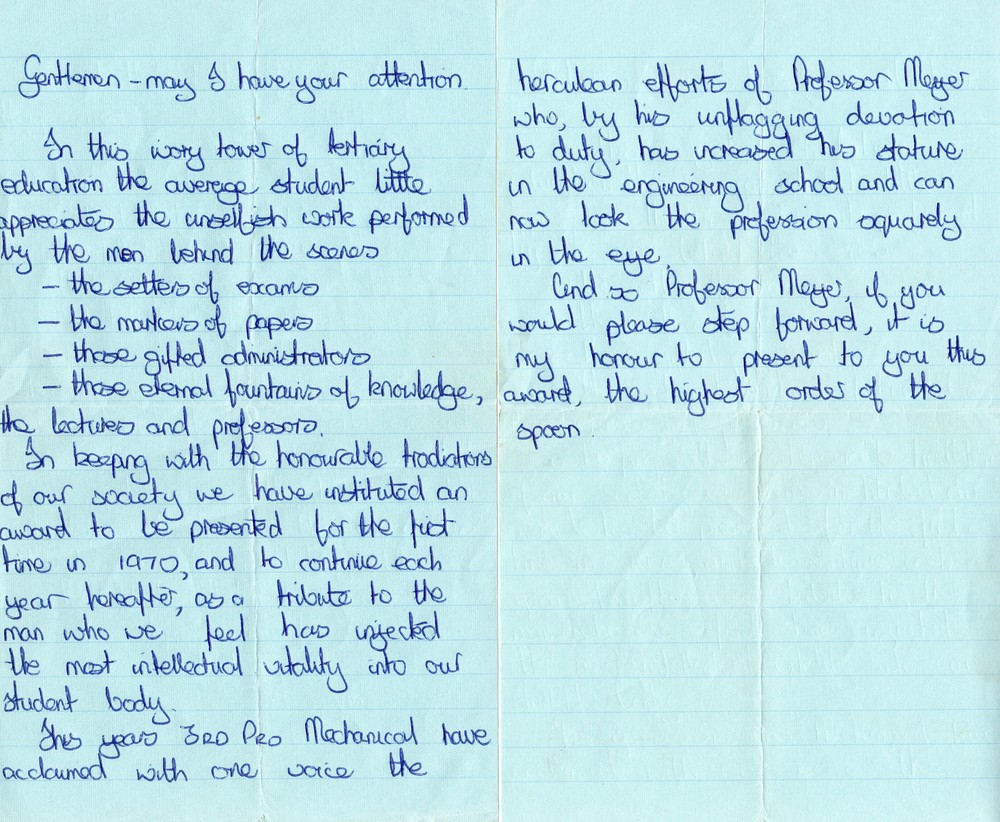 Gentlemen - may I have your attention.
In this ivory tower of tertiary
education the average student little
appreciates the unselfish work performed
by the men behind the scenes
- the setters of exams
- the markers of papers
- those gifted administrators
- those eternal fountains of knowledge,
the lectures and professors.
In keeping with the honourable tradiations
of our society we have instituted an
award to be presented for the first
time in 1970, and to continue each
year hereafter, as a tribute to the
man who we feel has injected
the most intellectual vitality into our
student body.
This years 3RD PRO Mechanical have
acclaimed with one voice the
herculean efforts of Professor Meyer
who, by his unflagging devotion
to duty, has increased his stature
in the engineering school and can
now look the profession squarely
in the eye.
And so Professor Meyer, if you
would please step forward, it is
my honour to present to you this
award, the highest order of the
spoon.